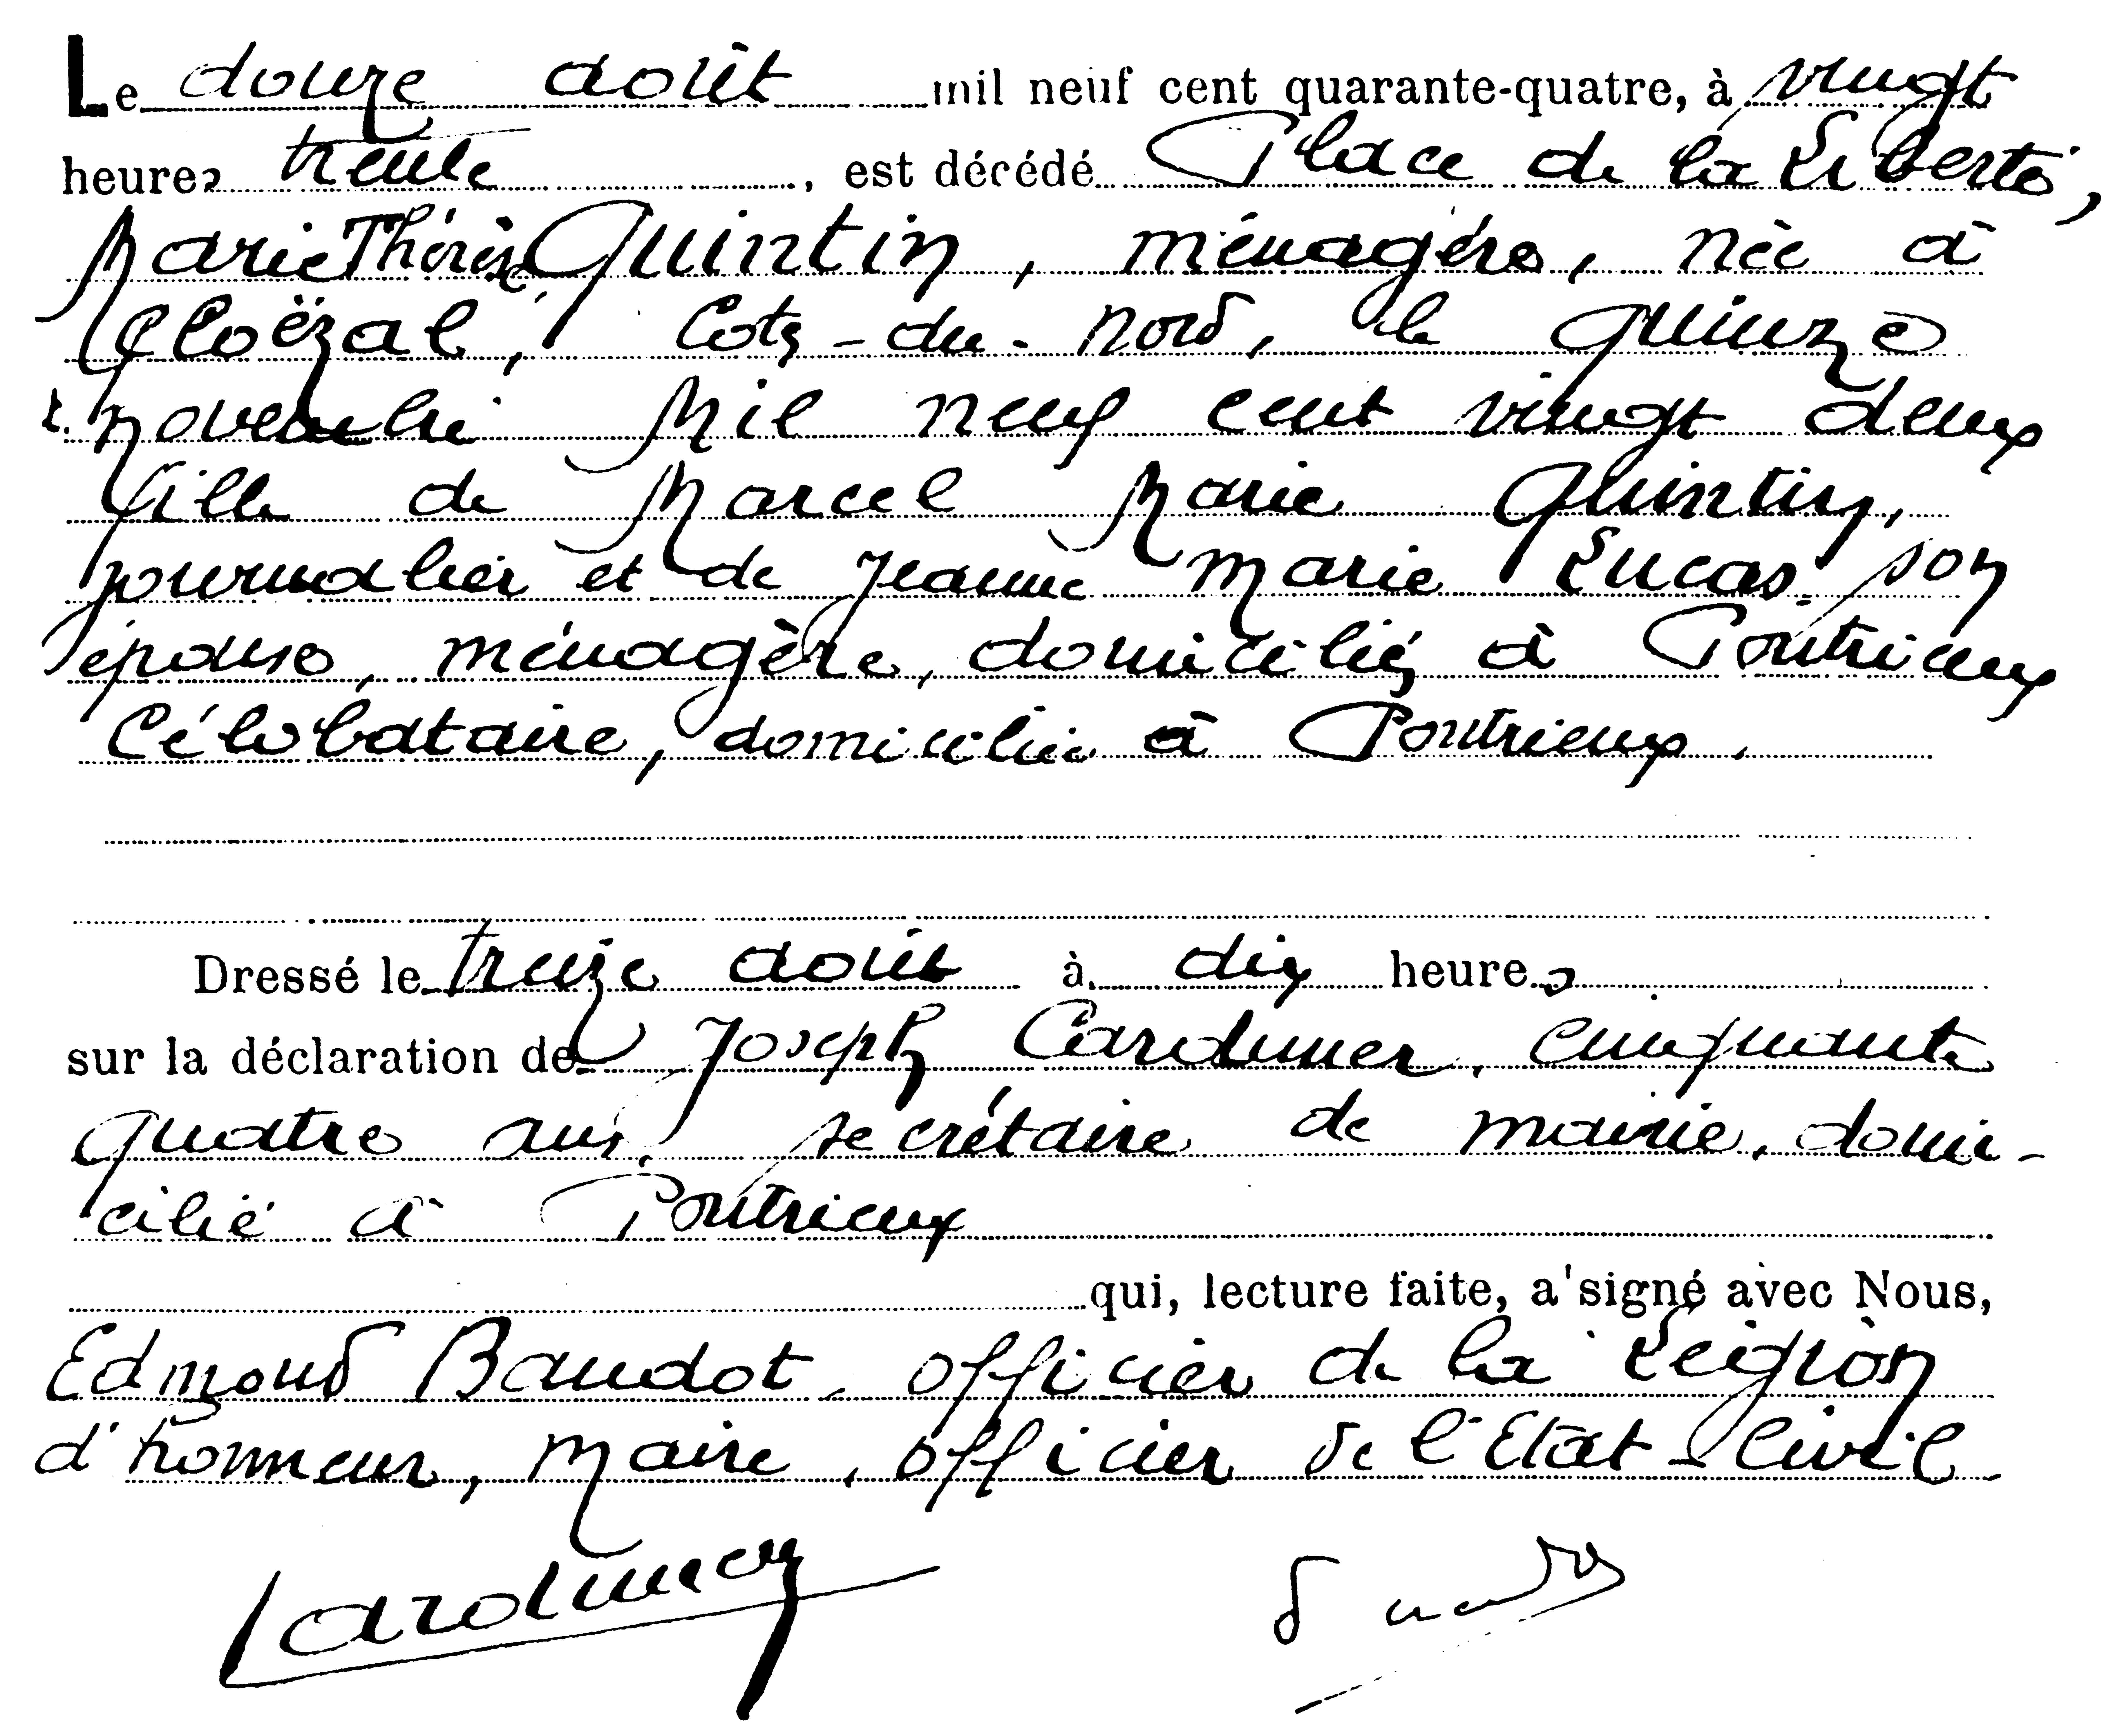 Le douze août mil neuf cent quarante-quatre, à vingt
heures trente, est décédé Place de la Liberté,
Marie Thérèse Quintin, ménagère, née à
Ploëzal, Cotes-du-Nord, le quinze
novembre Mil neuf cent vingt deux
fille de Marcel Marie Quintin,
journalier et de Jeanne Marie Lucas son
épouse, ménagère, domiciliés à Pontrieux
Célibataire, domiciliée à Pontrieux.
Dressé le treize août à dix heures
sur la déclaration de Joseph Cardunner, cinquante
quatre ans, secrétaire de mairie, domi-
cilié à Pontrieux
qui, lecture faite, a signé avec Nous,
Edmond Baudot, officier de la Légion
d'honneur, Maire, officier de l'Etat-Civil
Cardunner